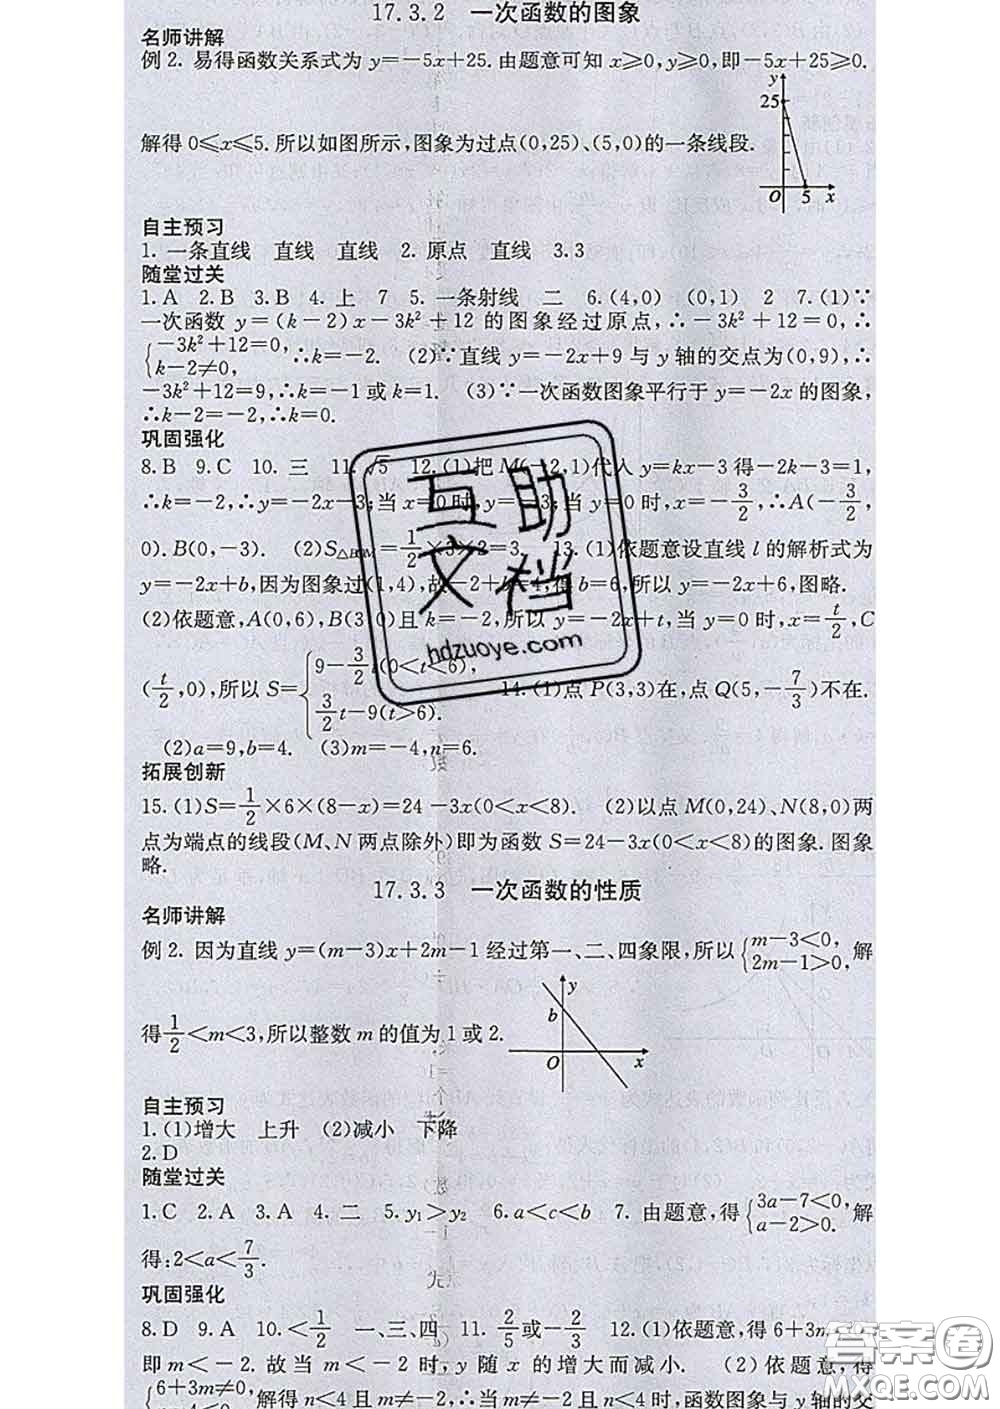 17.3.2 一次函数的图象
名师讲解
例2. 易得函数关系式为 y=-5x+25. 由题意可知 x≥0,y≥0,即-5x+25≥0.
y
25
解得 0≤x≤5. 所以如图所示,图象为过点(0,25)、(5,0)的一条线段.
O 5 x
自主预习
1. 一条直线 直线 直线 2. 原点 直线 3.3
随堂过关
1. A 2. B 3. B 4. 上 7 5. 一条射线 二 6. (4,0) (0,1) 2 7. (1)∵
一次函数 y=(k-2)x-3k²+12 的图象经过原点,∴-3k²+12=0,∴
{-3k²+12=0, k-2≠0, ∴k=-2. (2)∵直线 y=-2x+9 与 y 轴的交点为(0,9),∴
-3k²+12=9,∴k=-1 或 k=1. (3)∵一次函数图象平行于 y=-2x 的图象,
∴k-2=-2,∴k=0.
巩固强化
8. B 9. C 10. 三 11. √5 12. (1)把 M(-2,1)代入 y=kx-3 得-2k-3=1,
∴k=-2,∴y=-2x-3;当 x=0 时,y=-3;当 y=0 时,x=-3/2,∴A(-3/2,
0).B(0,-3). (2)S△BOM=1/2×3×2=3. 13. (1)依题意设直线 l 的解析式为
y=-2x+b,因为图象过(1,4),故-2+b=4,得 b=6,所以 y=-2x+6,图略.
(2)依题意,A(0,6),B(3,0)且 k=-2,所以 y=-2x+t,当 y=0 时,x=t/2,C
(t/2,0),所以 S={9-3/2 t(0<t<6), 3/2 t-9(t>6). 14. (1)点 P(3,3)在,点 Q(5,-7/3)不在.
(2)a=9,b=4. (3)m=-4,n=6.
拓展创新
15. (1)S=1/2×6×(8-x)=24-3x(0<x<8). (2)以点 M(0,24)、N(8,0)两
点为端点的线段(M、N 两点除外)即为函数 S=24-3x(0<x<8)的图象. 图象
略.
17.3.3 一次函数的性质
名师讲解
例2. 因为直线 y=(m-3)x+2m-1 经过第一、二、四象限,所以{m-3<0, 2m-1>0, 解
得1/2<m<3,所以整数 m 的值为 1 或 2.
y
b
O x
自主预习
1. (1)增大 上升 (2)减小 下降
2. D
随堂过关
1. C 2. A 3. A 4. 二 5. y₁>y₂ 6. a<c<b 7. 由题意,得{3a-7<0, a-2>0. 解
得:2<a<7/3.
巩固强化
8. D 9. A 10. <1/2 一、三、四 11. 2/5或-2/3 12. (1)依题意,得 6+3m<0,
即 m<-2. 故当 m<-2 时,y 随 x 的增大而减小. (2)依题意,得
{6+3m≠0, 解得 n<4 且 m≠-2,∴当 m≠-2 且 n<4 时,函数图象与 y 轴的交
互助
文档
hdzuoye.com
答案圈
MXQE.COM